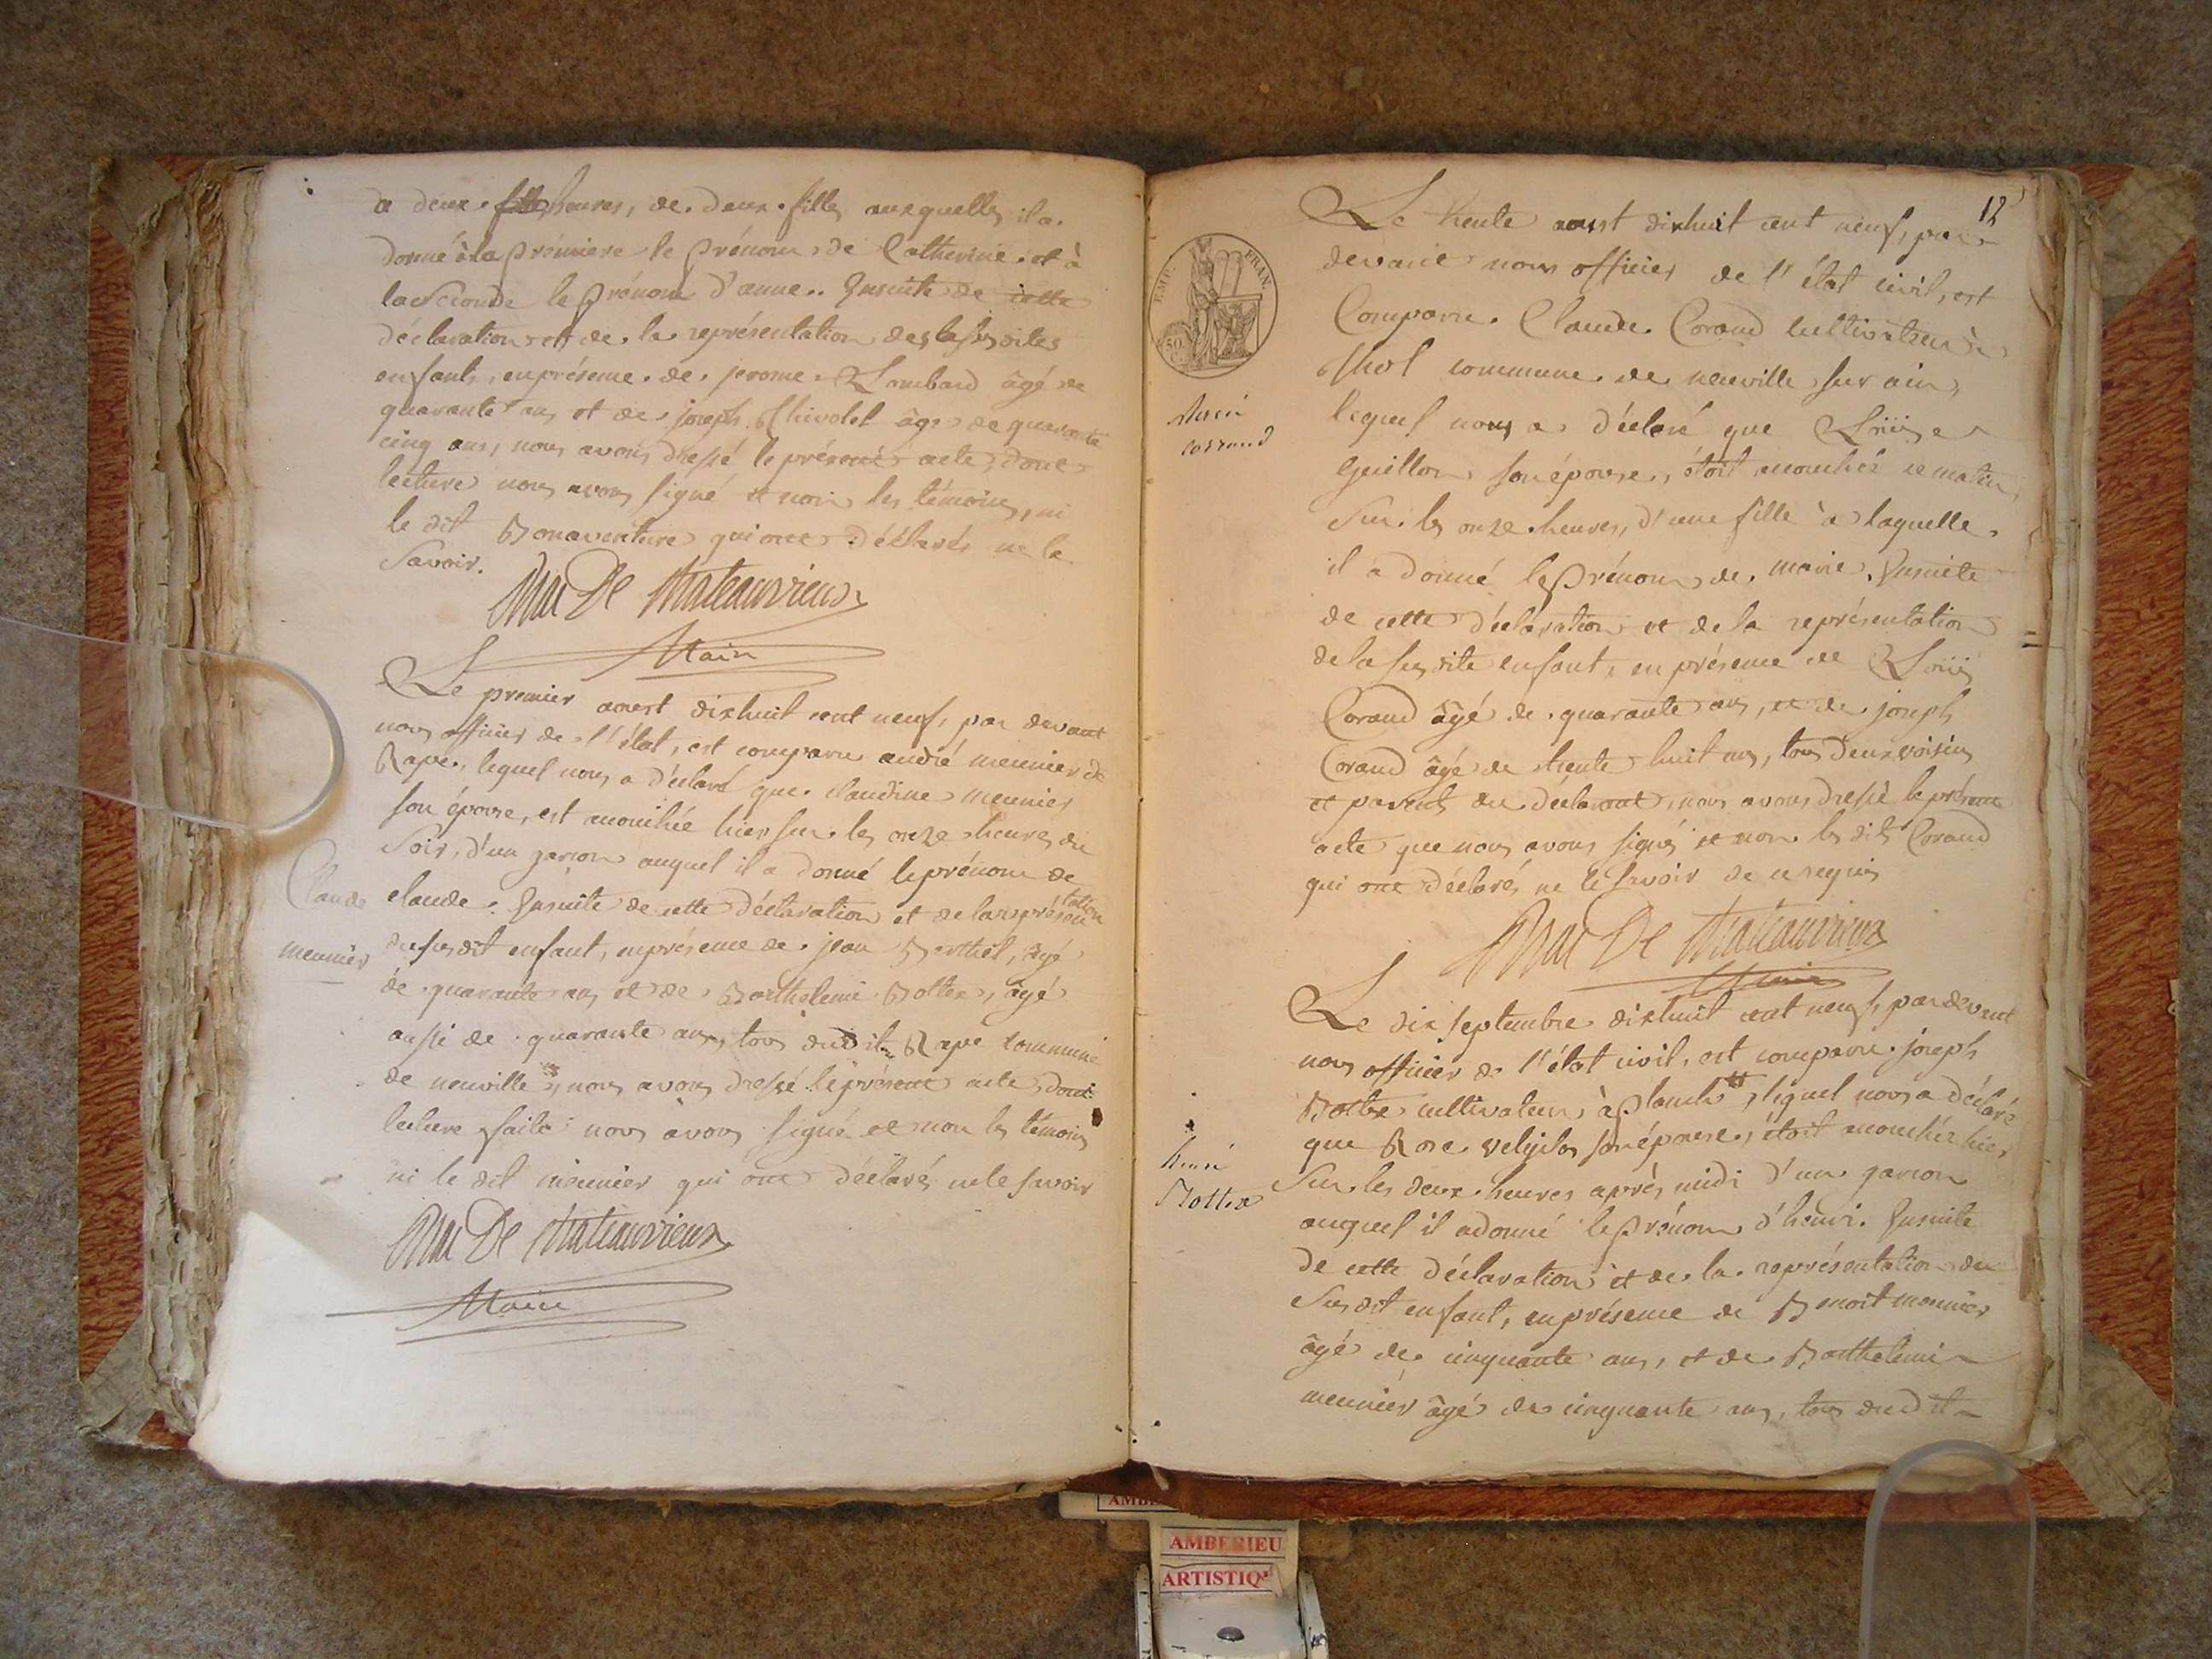 a deux heures, de deux filles auxquelles il a
donné à la prémiere le prénom de Catherine et à
la seconde le prénom d'anne. Ensuite de cette
déclaration et de la représentation des susdites
enfants, en présence de jerome Lombard âgé de
quarante ans et de joseph Chivolet âgé de quarante
cinq ans, nous avons dressé le présent acte, dont
lecture nous avons signé et non les témoins, ni
le dit Bonaventure qui ont déclarés ne le
savoir.
De Chateauvieux
Maire
Le premier aoust dixhuit cent neuf, par devant
nous officier de l'état, est comparu andré meunier de
Rape, lequel nous a déclaré que claudine meunier
son épouse, est accouchée hier sur les onze heures du
soir, d'un garcon auquel il a donné le prénom de
Claude
meunier
claude. Ensuite de cette déclaration et de la représentation
du susdit enfant, en présence de jean Berthet, âgé
de quarante ans et de Barthelemi Bottex, âgé
aussi de quarante ans, tous dudit Rape commune
de neuville, nous avons dressé le présent acte, dont
lecture faite nous avons signé et non les témoins
ni le dit meunier qui ont déclarés ne le savoir
De Chateauvieux
Maire
12
EMP. FRAN.
50
C.
Le trente aoust dixhuit cent neuf, par
devant nous officier de l'état civil, est
Comparu Claude Corand cultivateur à
Thol commune de neuville sur ain,
corrand
lequel nous a déclaré que Loüise
Guillon son épouse, étoit accouchée ce matin,
Sur les onze heures, d'une fille à laquelle
il a donné le prénom de marie. Ensuite
de cette déclaration et de la représentation
de la susdite enfant, en présence de Loüis
Corand âgé de quarante ans, et de joseph
Corand âgé de trente huit ans, tous deux voisins
et parents du déclarant, nous avons dressé le présent
acte que nous avons signé et non les dits Corand
qui ont déclarés ne le savoir de ce requis
De Chateauvieux
Maire
Le dix septembre dixhuit cent neuf, par devant
nous officier de l'état civil, est comparu joseph
Bottex cultivateur à planche, lequel nous a déclaré
que Rose velijilas son épouse, étoit accouchée hier
henri
Bottex
Sur les deux heures après midi d'un garcon
auquel il a donné le prénom d'henri. Ensuite
de cette déclaration et de la représentation du
Susdit enfant, en présence de Benoit meunier
âgé de cinquante ans, et de Barthelemi
meunier âgé de cinquante ans, tous dudit
AMBERIEU
ARTISTIQ